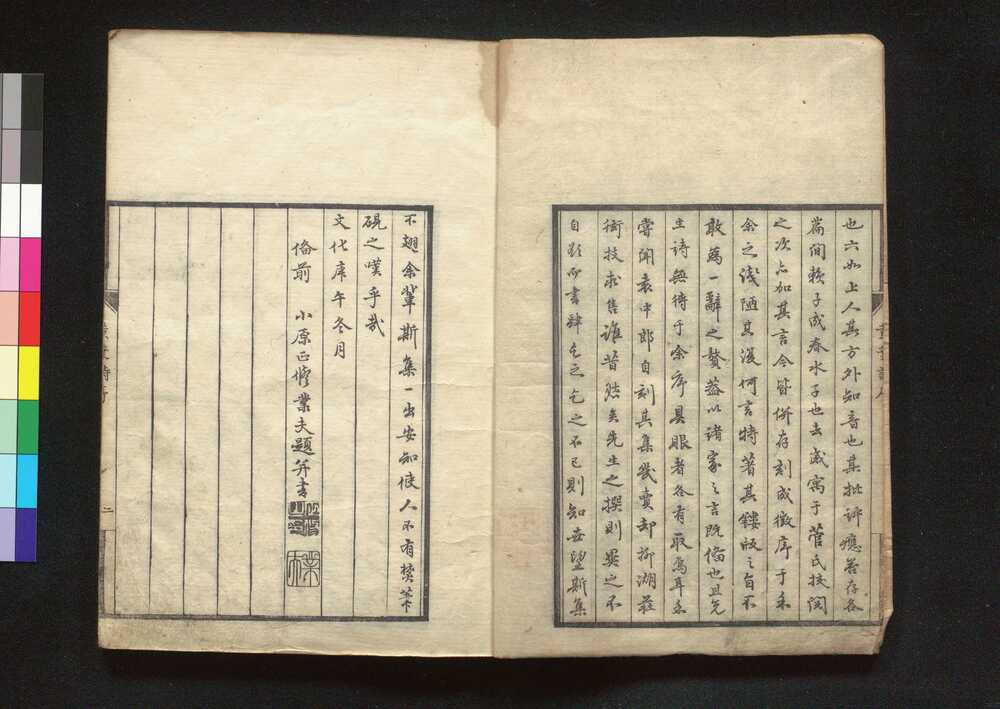 也六如上人其方外知音也其批評應答存各
篇間乾子成春水子也去歲寓于菅氏校閱
之次亦加其言今皆併存刻成徵序于余
余之淺陋其復何言特著其鏤版之旨不
敢為一辭之贅蓋以諸家之言既備也且先
生詩無待于余序具眼者各有取焉耳余
嘗聞袁中郎自刻其集幾賣却柳湖莊
衒技求售誰昔然矣先生之撰則異之不
自 而書肆乞之乞之不已則知世望斯集
不翅余輩斯集一出安知使人不有焚筆
硯之嘆乎哉
文化庚午冬月
備前 小原正修業夫題并書